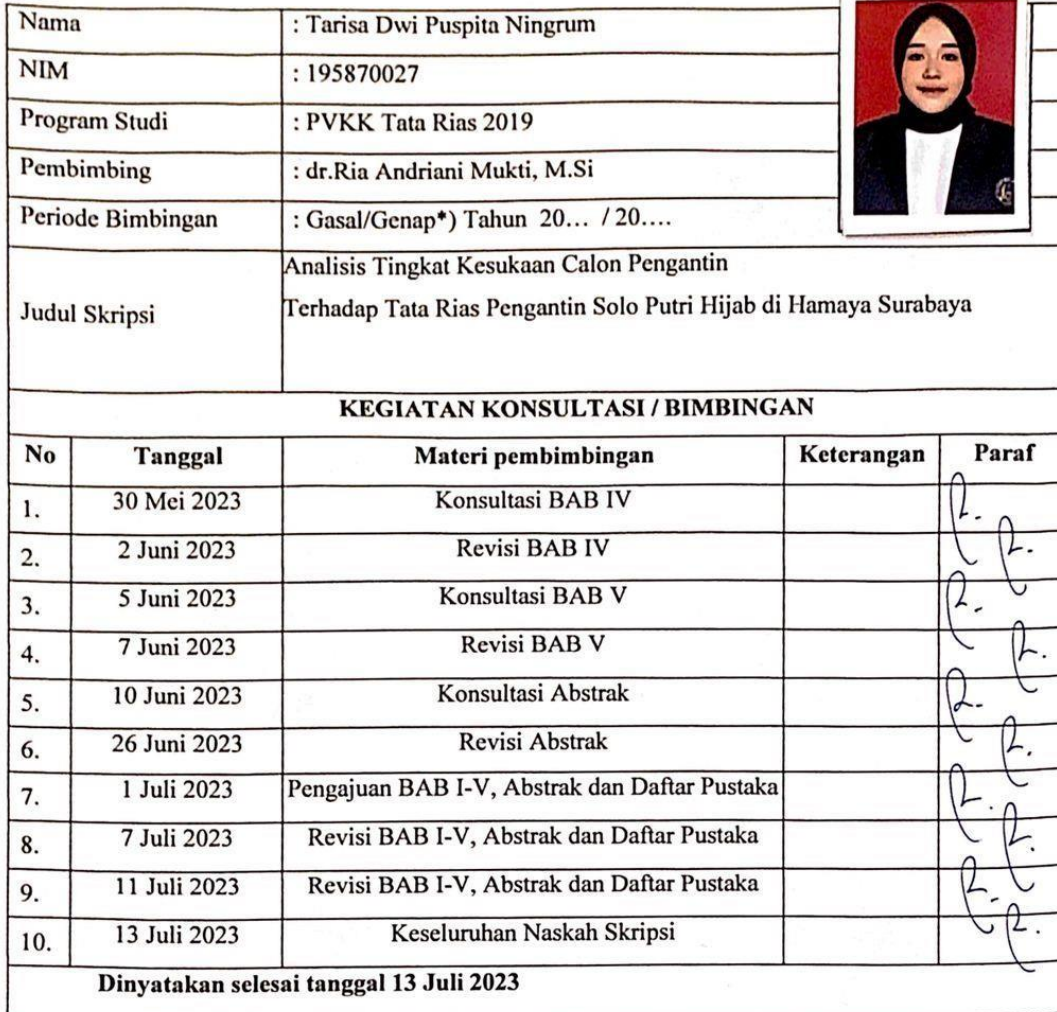 Nama : Tarisa Dwi Puspita Ningrum
NIM : 195870027
Program Studi : PVKK Tata Rias 2019
Pembimbing : dr.Ria Andriani Mukti, M.Si
Periode Bimbingan : Gasal/Genap*) Tahun 20... / 20....
Judul Skripsi
Analisis Tingkat Kesukaan Calon Pengantin
Terhadap Tata Rias Pengantin Solo Putri Hijab di Hamaya Surabaya
KEGIATAN KONSULTASI / BIMBINGAN
No Tanggal Materi pembimbingan Keterangan Paraf
1. 30 Mei 2023 Konsultasi BAB IV
2. 2 Juni 2023 Revisi BAB IV
3. 5 Juni 2023 Konsultasi BAB V
4. 7 Juni 2023 Revisi BAB V
5. 10 Juni 2023 Konsultasi Abstrak
6. 26 Juni 2023 Revisi Abstrak
7. 1 Juli 2023 Pengajuan BAB I-V, Abstrak dan Daftar Pustaka
8. 7 Juli 2023 Revisi BAB I-V, Abstrak dan Daftar Pustaka
9. 11 Juli 2023 Revisi BAB I-V, Abstrak dan Daftar Pustaka
10. 13 Juli 2023 Keseluruhan Naskah Skripsi
Dinyatakan selesai tanggal 13 Juli 2023